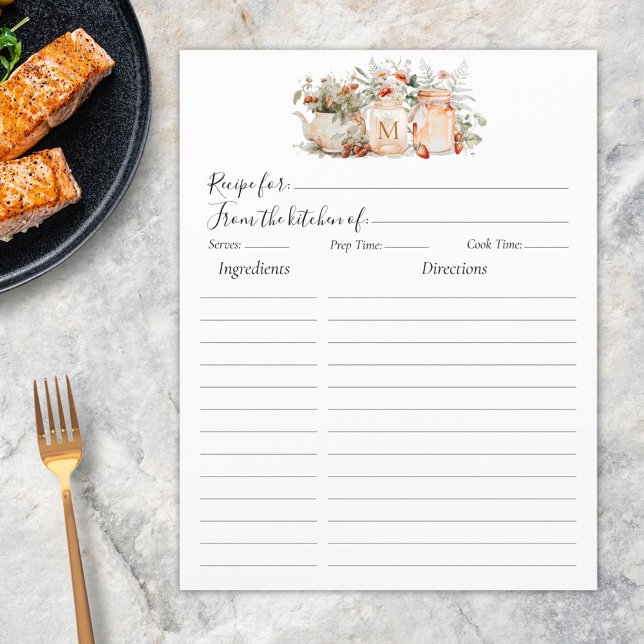 M
Recipe for:
From the kitchen of:
Serves: Prep Time: Cook Time:
Ingredients Directions